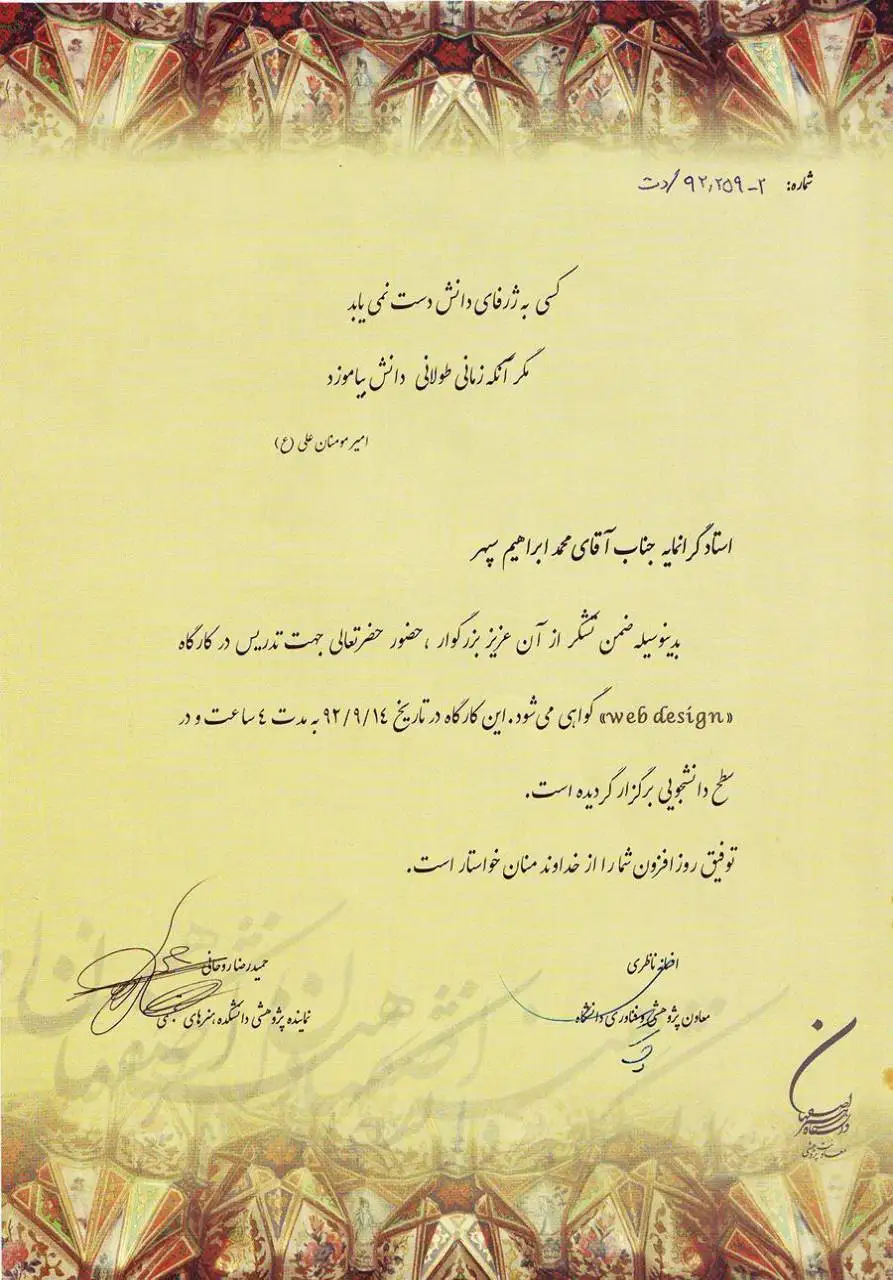 شماره: ۲-۹۲,۲۵۹/دت
کسی به ژرفای دانش دست نمی یابد
مگر آنکه زمانی طولانی دانش بیاموزد
امیر مومنان علی (ع)
استاد گرانمایه جناب آقای محمد ابراهیم سپهر
بدینوسیله ضمن تشکر از آن عزیز بزرگوار ، حضور حضرتعالی جهت تدریس در کارگاه
«web design» گواهی می شود. این کارگاه در تاریخ ۹۲/۹/۱٤ به مدت ٤ ساعت و در
سطح دانشجویی برگزار گردیده است.
توفیق روز افزون شما را از خداوند منان خواستار است.
ناظری
معاون پژوهشی و فناوری دانشگاه
حمیدرضا روحانی
نماینده پژوهشی دانشکده هنرهای تجسمی
دانشگاه هنر اصفهان
معاونت پژوهشی